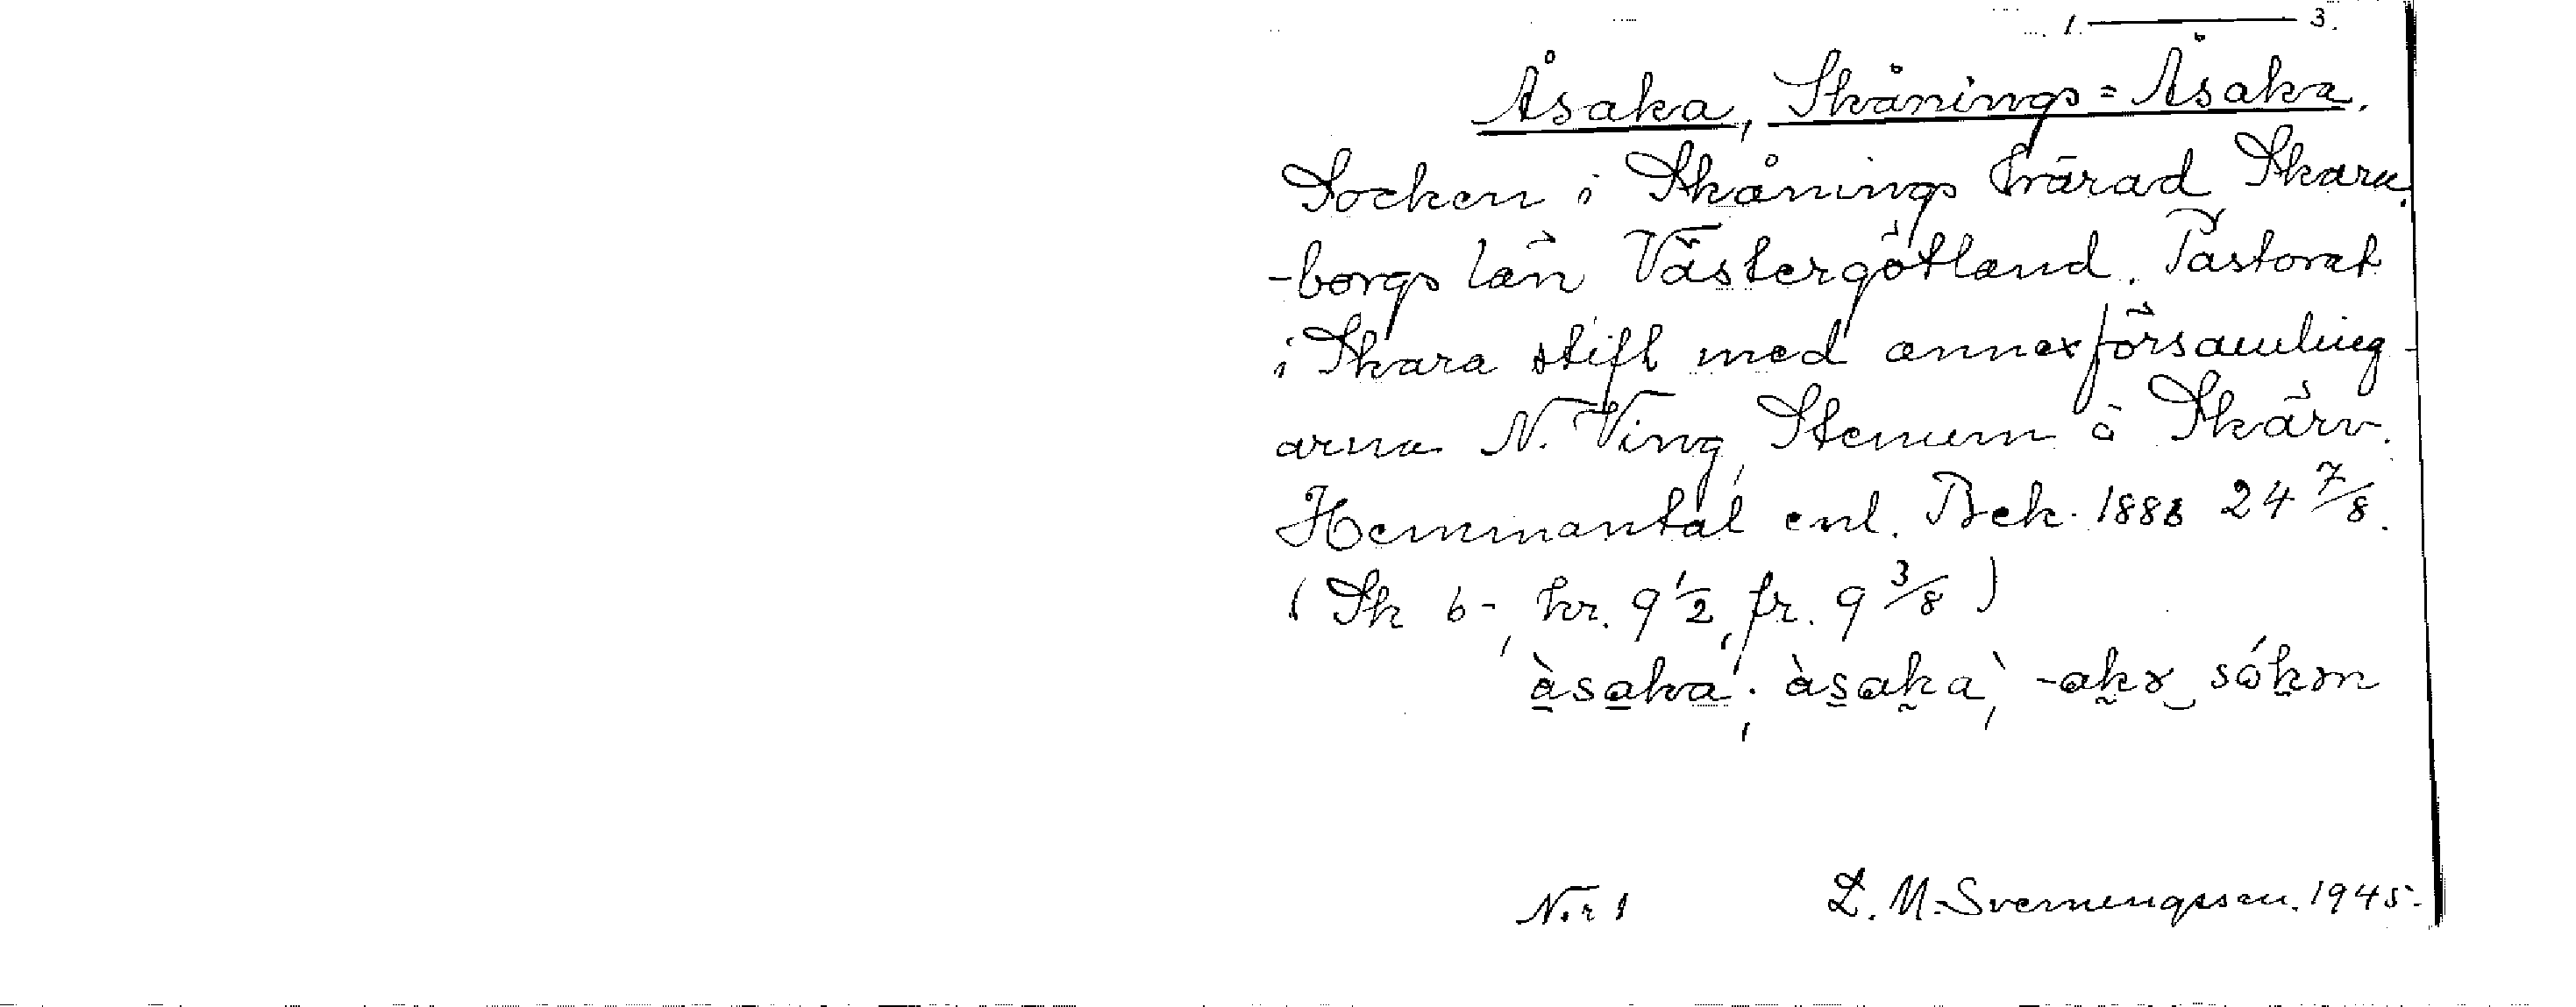 1. — 3.
Åsaka, Skånings=Åsaka.
Socken i Skånings härad Skara-
-borgs län Västergötland. Pastorat
i Skara stift med annexförsamling-
arna N. Ving, Stenum å Skärv.
Hemmantal enl. Bek. 1881 24 7/8.
(Sk 6-, kr. 9 1/2, fr. 9 3/8)
àsaka; àsaka, -akə sókən
N:r 1 L. M. Svenungsson. 1945.